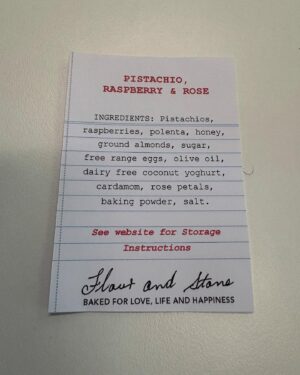 PISTACHIO,
RASPBERRY & ROSE
INGREDIENTS: Pistachios,
raspberries, polenta, honey,
ground almonds, sugar,
free range eggs, olive oil,
dairy free coconut yoghurt,
cardamom, rose petals,
baking powder, salt.
See website for Storage
Instructions
Flour and Stone
BAKED FOR LOVE, LIFE AND HAPPINESS